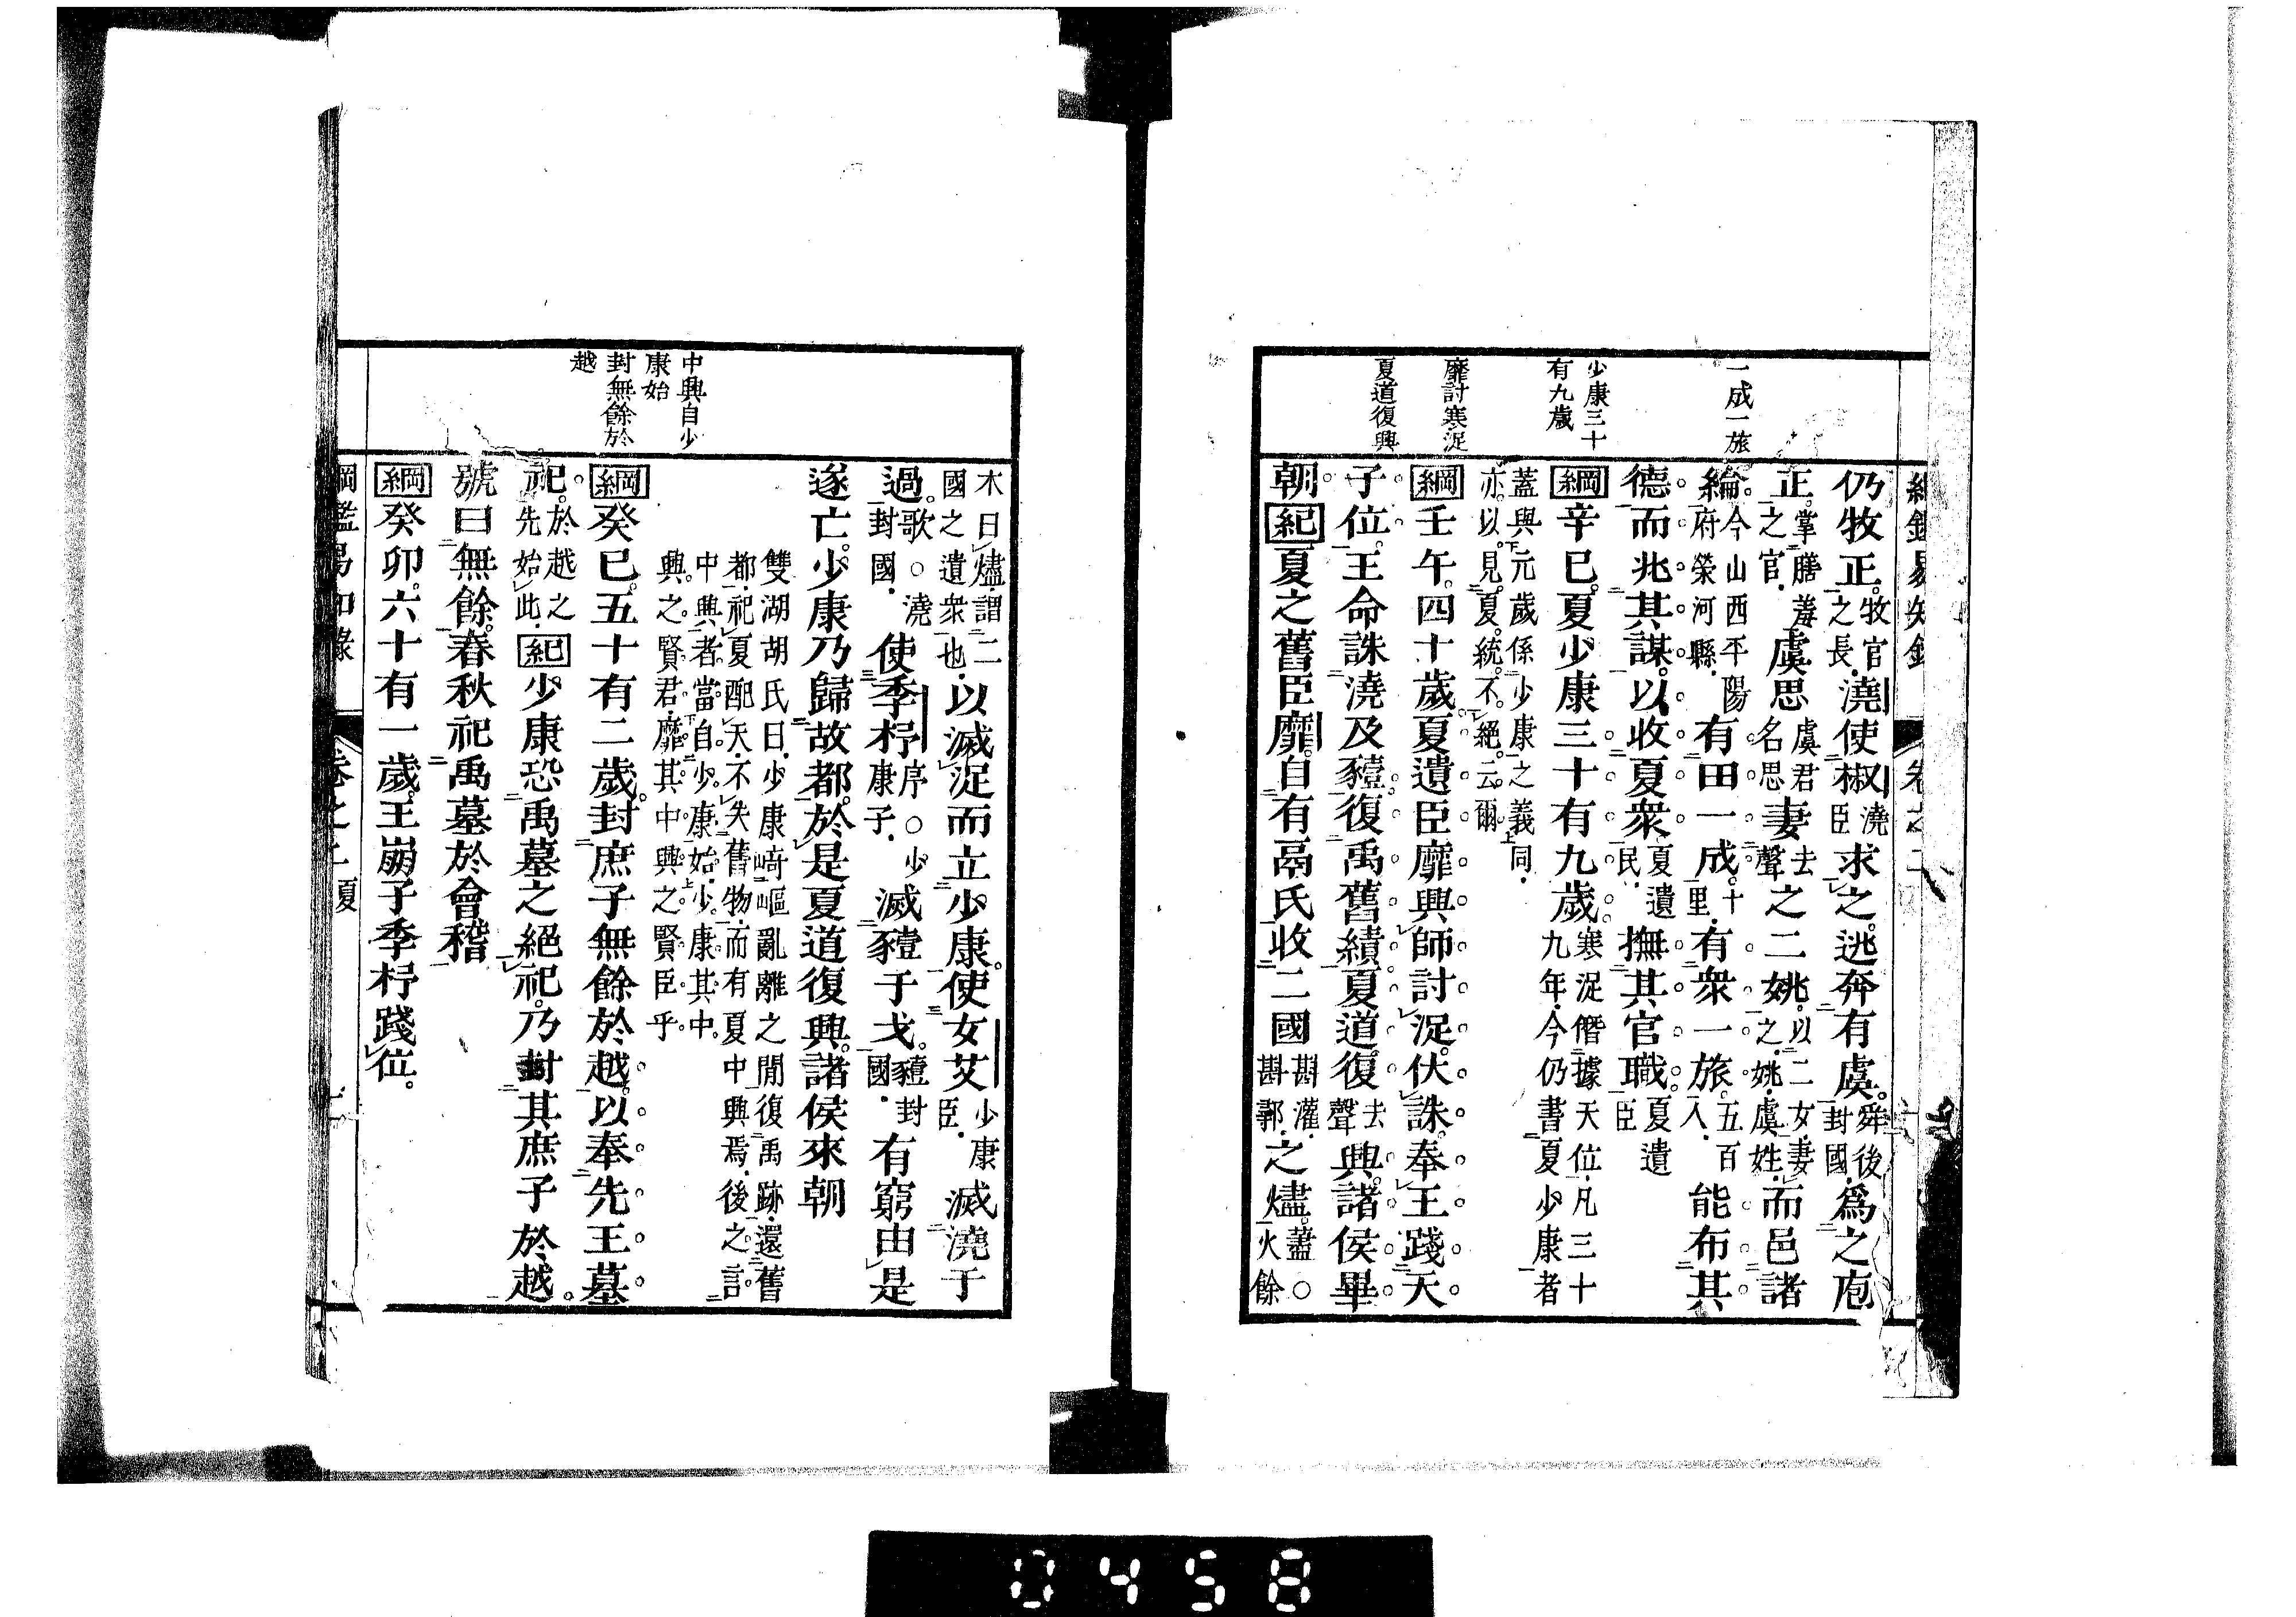 一成一旅
少康三十
有九歲
靡討寒浞
夏道復興
仍牧正牧官之長澆使椒澆臣求之逃奔有虞舜後封國爲之庖
正掌膳羞之官虞思虞君名思妻去聲之二姚以二女妻之姚虞姓而邑諸
綸今山西平陽府榮河縣有田一成十里有衆一旅五百人能布其
德而兆其謀以收夏衆夏遺民撫其官職夏遺臣
綱辛巳夏少康三十有九歲寒浞僭據天位凡三十九年今仍書夏少康者
蓋與元歲係少康之義同亦以見夏統不絕云爾
綱壬午四十歲夏遺臣靡興師討浞伏誅奉王踐天
子位王命誅澆及豷復禹舊績夏道復去聲興諸侯畢
朝紀夏之舊臣靡自有鬲氏收二國斟灌斟鄩之燼藎○火餘
中興自少
康始
封無餘於
越
木曰燼謂二國之遺衆也以滅浞而立少康使女艾少康臣滅澆于
過歌○澆封國使季杼序○少康子滅豷于戈豷封國有窮由是
遂亡少康乃歸故都於是夏道復興諸侯來朝
雙湖胡氏曰少康崎嶇亂離之閒復禹跡還舊
都祀夏配天不失舊物而有夏中興焉後之言
中興者當自少康始少康其中
興之賢君靡其中興之賢臣乎
綱癸巳五十有二歲封庶子無餘於越以奉先王墓
祀於越之先始此紀少康恐禹墓之絕祀乃封其庶子於越
號曰無餘春秋祀禹墓於會稽
綱癸卯六十有一歲王崩子季杼踐位
綱鑑易知錄 卷之二夏
0458